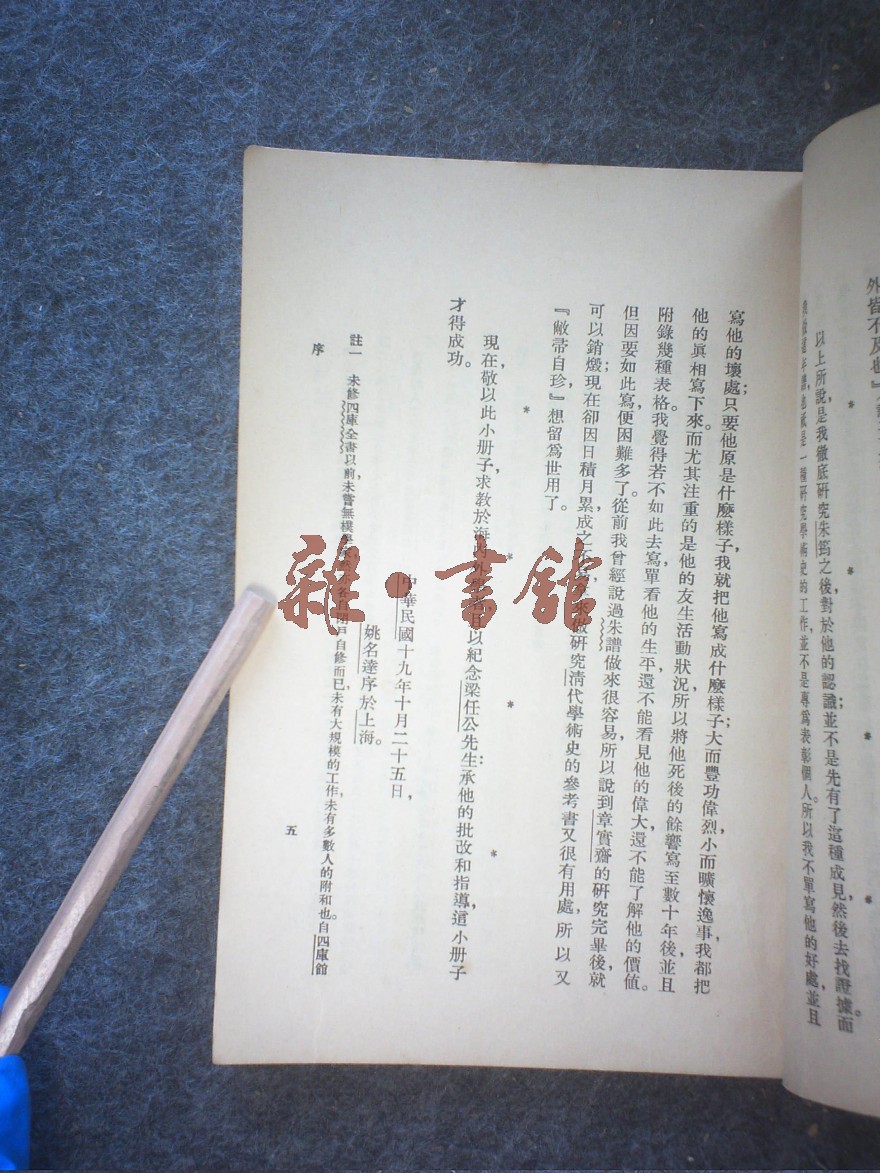 外皆不及也』
以上所說，是我徹底研究朱筠之後，對於他的認識；並不是先有了這種成見然後去找證據。而
是一種研究學術史的工作，並不是專爲表彰個人。所以我不單寫他的好處，並且
寫他的壞處；只要他原是什麼樣子，我就把他寫成什麼樣子；大而豐功偉烈，小而曠懷逸事，我都把
他的眞相寫下來。而尤其注重的是他的友生活動狀況，所以將他死後的餘響寫至數十年後，並且
附錄幾種表格。我覺得若不如此去寫，單看他的生平，還不能看見他的偉大，還不能了解他的價値。
但因要如此寫，便困難多了。從前我曾經說過朱譜做來很容易，所以說到章實齋的研究完畢後，就
可以銷燬；現在卻因日積月累，成之不易，拿來做研究清代學術史的參考書又很有用處，所以又
『敝帚自珍，』想留爲世用了。
現在，敬以此小册子，求教於海內外學者，且以紀念梁任公先生：承他的批改和指導，這小册子
才得成功。
中華民國十九年十月二十五日，
姚名達序於上海。
註一 未修四庫全書以前，未嘗無樸學家，各自閉戶自修而已，未有大規模的工作，未有多數人的附和也。自四庫館
序
五
雜·書館